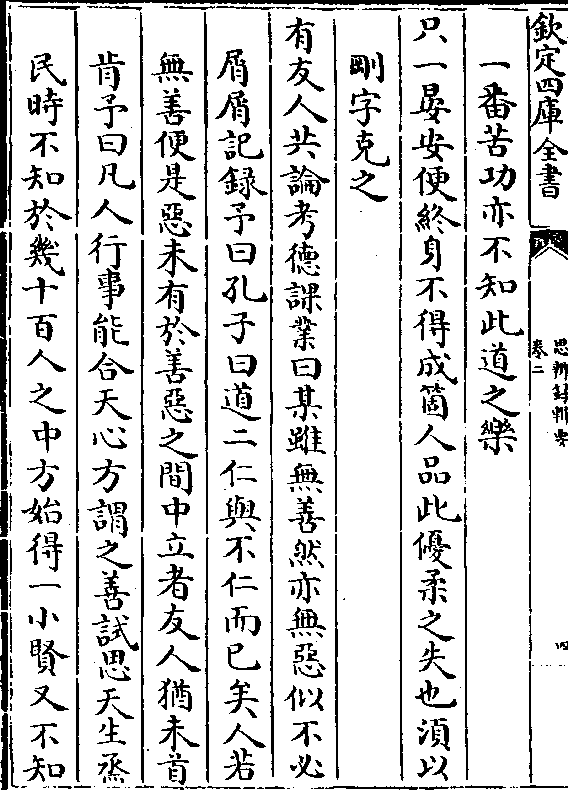 欽定四庫全書
思辨録輯要
卷二
四
一番苦功亦不知此道之樂
只一晏安便終身不得成箇人品此優柔之失也湏以
剛字克之
有友人共論考德課業曰某雖無善然亦無惡似不必
屑屑記録予曰孔子曰道二仁與不仁而已矣人若
無善便是惡未有於善惡之間中立者友人猶未首
肯予曰凡人行事能合天心方謂之善試思天生烝
民時不知於幾十百人之中方始得一小賢又不知